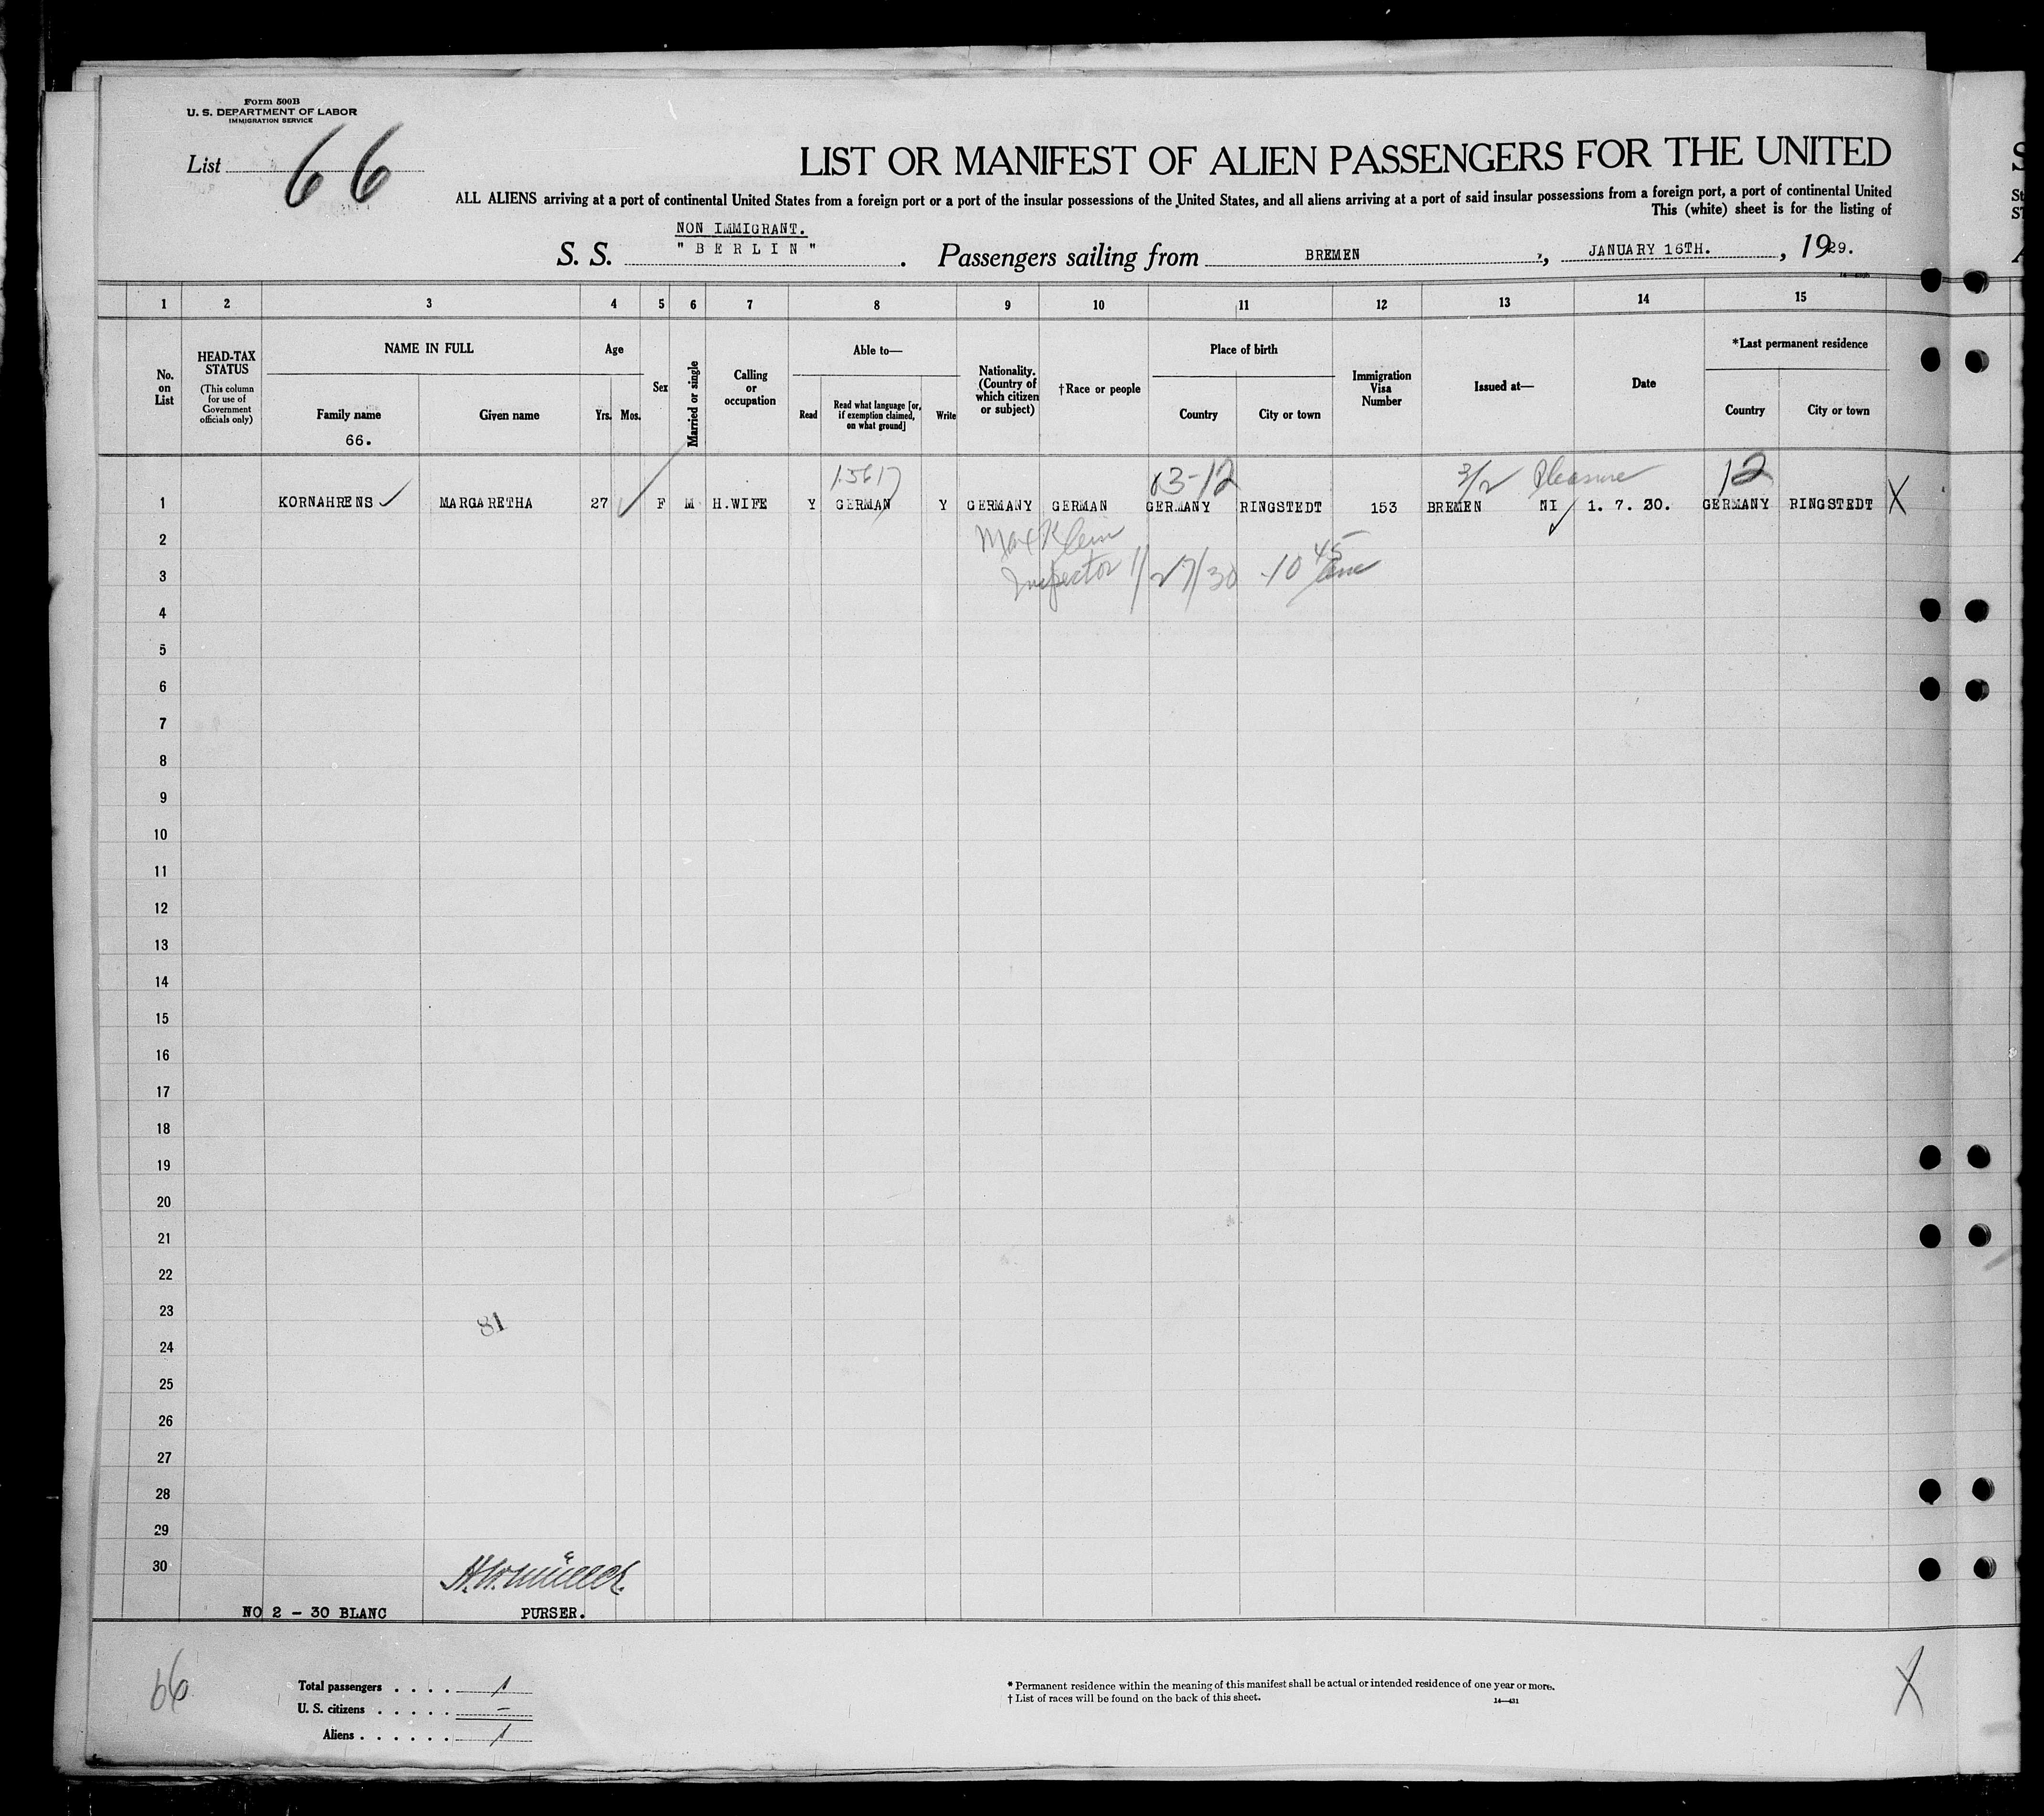 Form 500B
U. S. DEPARTMENT OF LABOR
IMMIGRATION SERVICE
List 66
LIST OR MANIFEST OF ALIEN PASSENGERS FOR THE UNITED
ALL ALIENS arriving at a port of continental United States from a foreign port or a port of the insular possessions of the United States, and all aliens arriving at a port of said insular possessions from a foreign port, a port of continental United
This (white) sheet is for the listing of
NON IMMIGRANT.
S. S. "BERLIN". Passengers sailing from BREMEN, JANUARY 16TH., 1929.
1 2 3 4 5 6 7 8 9 10 11 12 13 14 15
No. on List
HEAD-TAX STATUS
(This column for use of Government officials only)
NAME IN FULL
Family name
66.
Given name
Age
Yrs. Mos.
Sex
Married or single
Calling or occupation
Able to—
Read
Read what language [or, if exemption claimed, on what ground]
Write
Nationality. (Country of which citizen or subject)
†Race or people
Place of birth
Country
City or town
Immigration Visa Number
Issued at—
Date
*Last permanent residence
Country
City or town
3/2 Pleasure 12
1 KORNAHRENS MARGARETHA 27 F M H.WIFE Y GERMAN Y GERMANY GERMAN GERMANY RINGSTEDT 153 BREMEN NI 1. 7. 30. GERMANY RINGSTEDT X
2 Max Klein
3 Inspector 1/27/30 10 45
4
5
6
7
8
9
10
11
12
13
14
15
16
17
18
19
20
21
22
23
81
24
25
26
27
28
29
30
NO 2 - 30 BLANC PURSER.
66
Total passengers . . . . 1
U. S. citizens . . . . . –
Aliens . . . . . . 1
* Permanent residence within the meaning of this manifest shall be actual or intended residence of one year or more.
† List of races will be found on the back of this sheet.
14—431
X